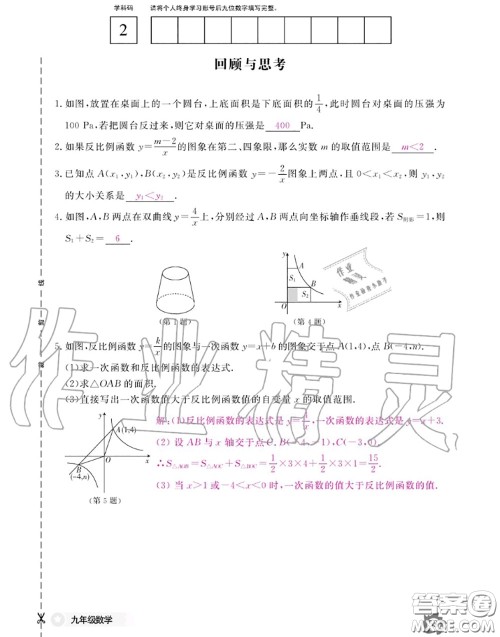 学科码 请将个人终身学习账号后九位数字填写完整。
2
回顾与思考
1.如图,放置在桌面上的一个圆台,上底面积是下底面积的1/4,此时圆台对桌面的压强为
100 Pa,若把圆台反过来,则它对桌面的压强是 400 Pa.
2.如果反比例函数 y=(m-2)/x 的图象在第二、四象限,那么实数 m 的取值范围是 m<2 .
3.已知点 A(x₁,y₁),B(x₂,y₂)是反比例函数 y=-2/x 图象上两点,且 0<x₁<x₂,则 y₁,y₂
的大小关系是 y₁<y₂ .
4.如图,A,B 两点在双曲线 y=4/x 上,分别经过 A,B 两点向坐标轴作垂线段,若 S阴影=1,则
S₁+S₂= 6 .
y A S₁ B S₂ O x
(第 1 题) (第 4 题)
5.如图,反比例函数 y=k/x 的图象与一次函数 y=x+b 的图象交于点 A(1,4),点 B(-4,n).
(1)求一次函数和反比例函数的表达式.
(2)求△OAB 的面积.
(3)直接写出一次函数值大于反比例函数值的自变量 x 的取值范围.
解:(1)反比例函数的表达式是 y=4/x,一次函数的表达式是 y=x+3.
(2)设 AB 与 x 轴交于点 C,B(-4,-1),C(-3,0)
∴S△AOB=S△AOC+S△BOC=1/2×3×4+1/2×3×1=15/2.
(3)当 x>1 或-4<x<0 时,一次函数的值大于反比例函数的值.
y A(1,4) O x B (-4,n)
(第 5 题)
九年级数学
作业精灵
答案圈
MXQE.COM